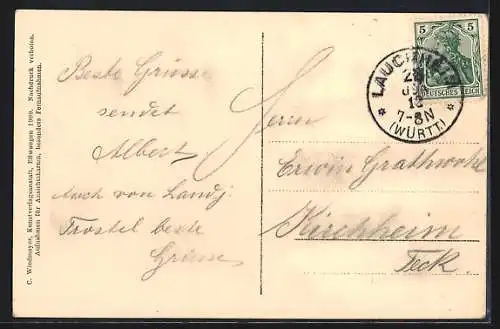 C. Windmeyer, Kunstverlagsanstalt, Ellwangen 1909. Nachdruck verboten.
Aufnahmen für Ansichtskarten, besonders Fernaufnahmen.
Beste Grüsse
sendet
Albert
Auch von Landj.
Trostel beste
Grüsse
5 5
DEUTSCHES REICH
LAUCHHEIM
7-8N
(WÜRTT.)
Herrn
Erwin Grathwohl
Kirchheim
Teck.